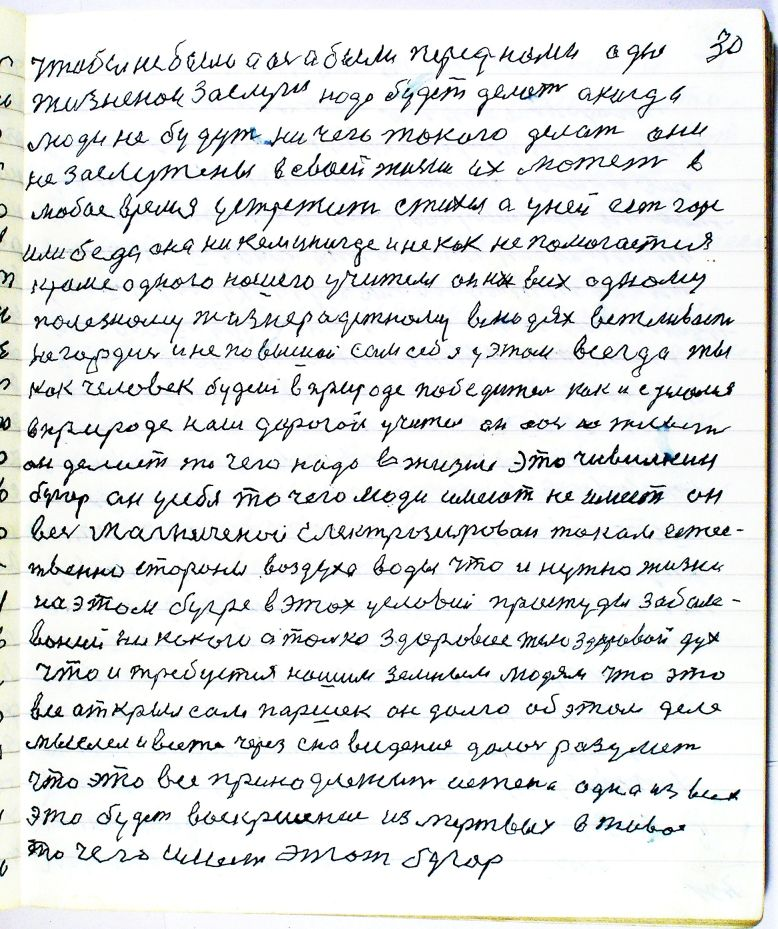 чтобы не было а он а были перед нами одно 30
жизненои заслуги надо будет делат а когда
люди не будут ни чего токого делат они
не заслужены в своей жизни их может в
любое время устретит стихия а у ней ест горе
или беда она ни кем и нигде и не как не помогается
кроме одного нашего учителя он их одному
полезному жизнерадужному в людях вежливости
не гордися и не повышай сам себя у этом всегда ты
как человек будеш в природе победител как и сделался
в природе наш дорогой учител он
он делает то чего надо в жизни это чивилкин
бугор он у себя то чего люди имеют не имеет он
вес магниченой электрозирован током естес-
твенно стороны воздуха воды что и нужно жизни
на этом бугре в этох условий простуды забале-
ваний ни какого а только здоровое тело здоровой дух
что и требуется нашим земным людям что это
все аткрыл сам паршек он долго об этом деле
мыслел и вести через сна видение долог разумет
что это все принодлежит истена одна из всех
это будет воскришение из мертвых в живое
то чего имеет этот бугор